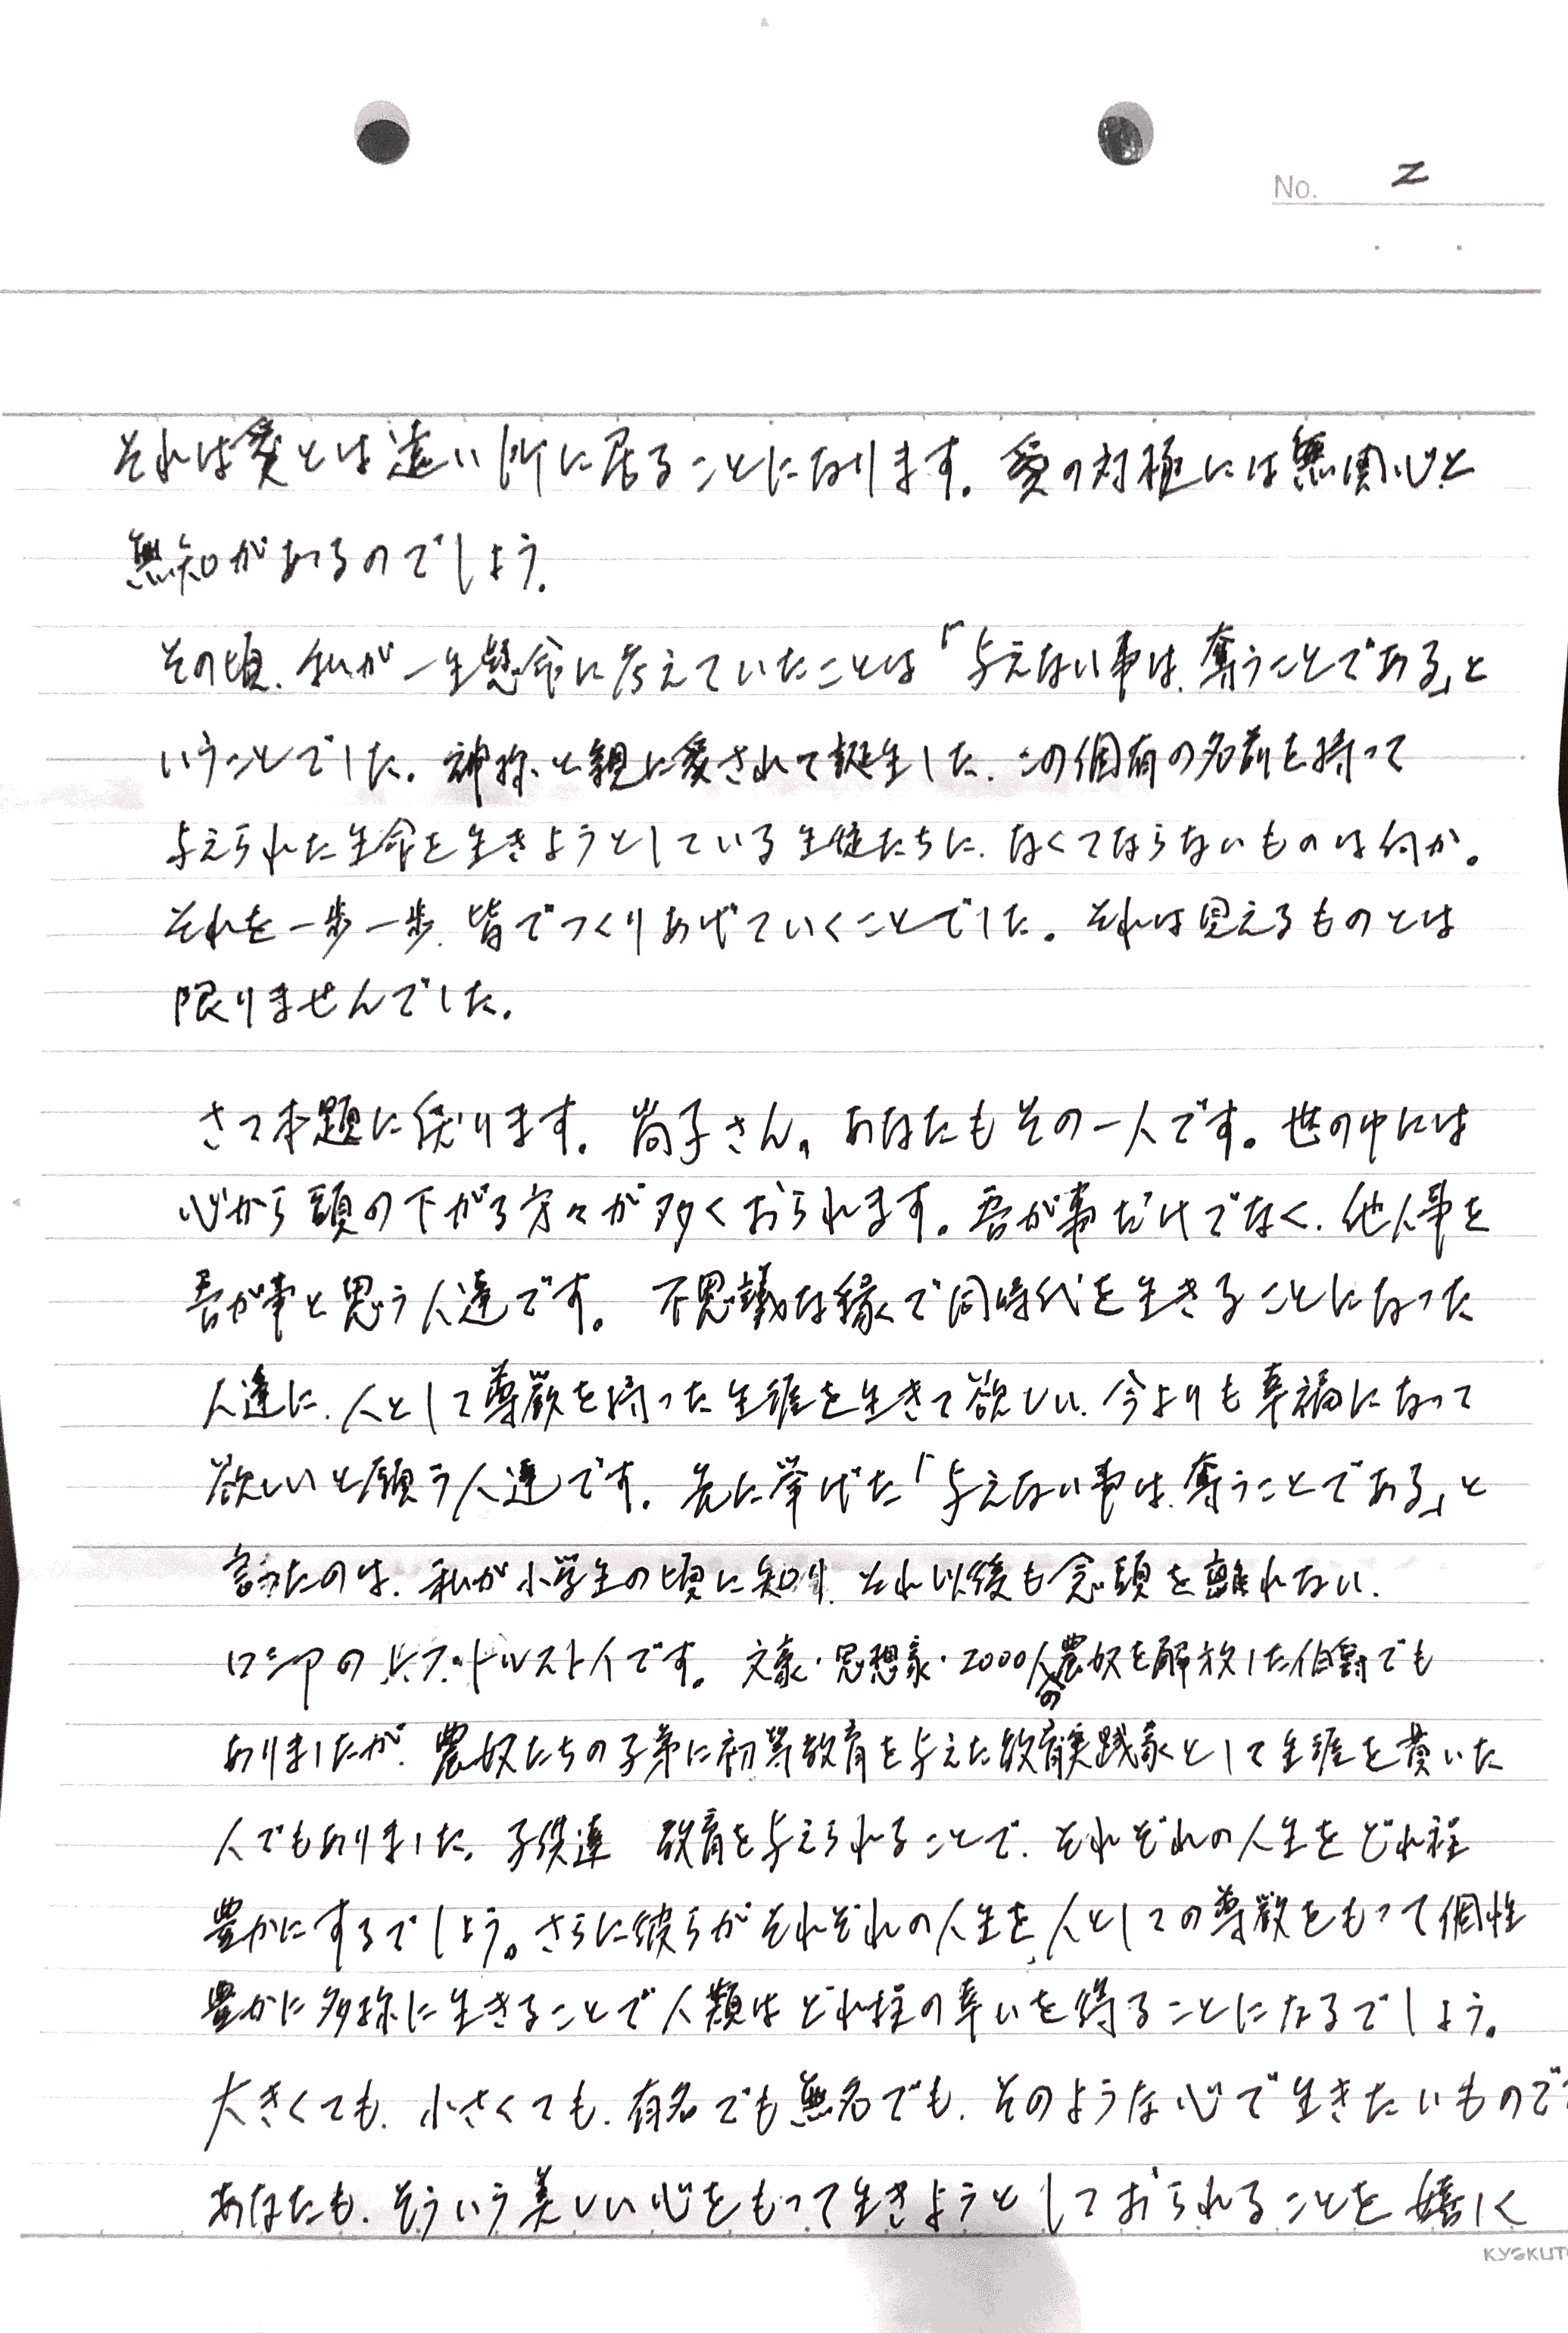 No. 2
それは愛とは遠い所に居ることになります。愛の対極には無関心と
無知があるのでしょう。
その頃、私が一生懸命に考えていたことは「与えない事は、奪うことである」と
いうことでした。神様と親に愛されて誕生した、この個有の名前を持って
与えられた生命を生きようとしている生徒たちに、なくてならないものは何か。
それを一歩一歩、皆でつくりあげていくことでした。それは見えるものとは
限りませんでした。
さて本題に戻ります。尚子さん、あなたもその一人です。世の中には
心から頭の下がる方々が多くおられます。吾が事だけでなく、他人事を
吾が事と思う人達です。不思議な縁で同時代を生きることになった
人達に、人として尊厳を持った生涯を生きて欲しい、今よりも幸福になって
欲しいと願う人達です。先に挙げた「与えない事は、奪うことである」と
言ったのは、私が小学生の頃に知り、それ以後も念頭を離れない、
ロシアの トルストイです。文豪・思想家・2000人の農奴を解放した伯爵でも
ありましたが、農奴たちの子弟に初等教育を与えた教育実践家として生涯を貫いた
人でもありました。子供達 教育を与えられることで、それぞれの人生をどれ程
豊かにするでしょう。さらに彼らがそれぞれの人生を、人としての尊厳をもって個性
豊かに多様に生きることで人類はどれ程の幸いを得ることになるでしょう。
大きくても、小さくても、有名でも無名でも、そのような心で生きたいもので
あなたも、そういう美しい心をもって生きようとしておられることを嬉しく
KYOKUT